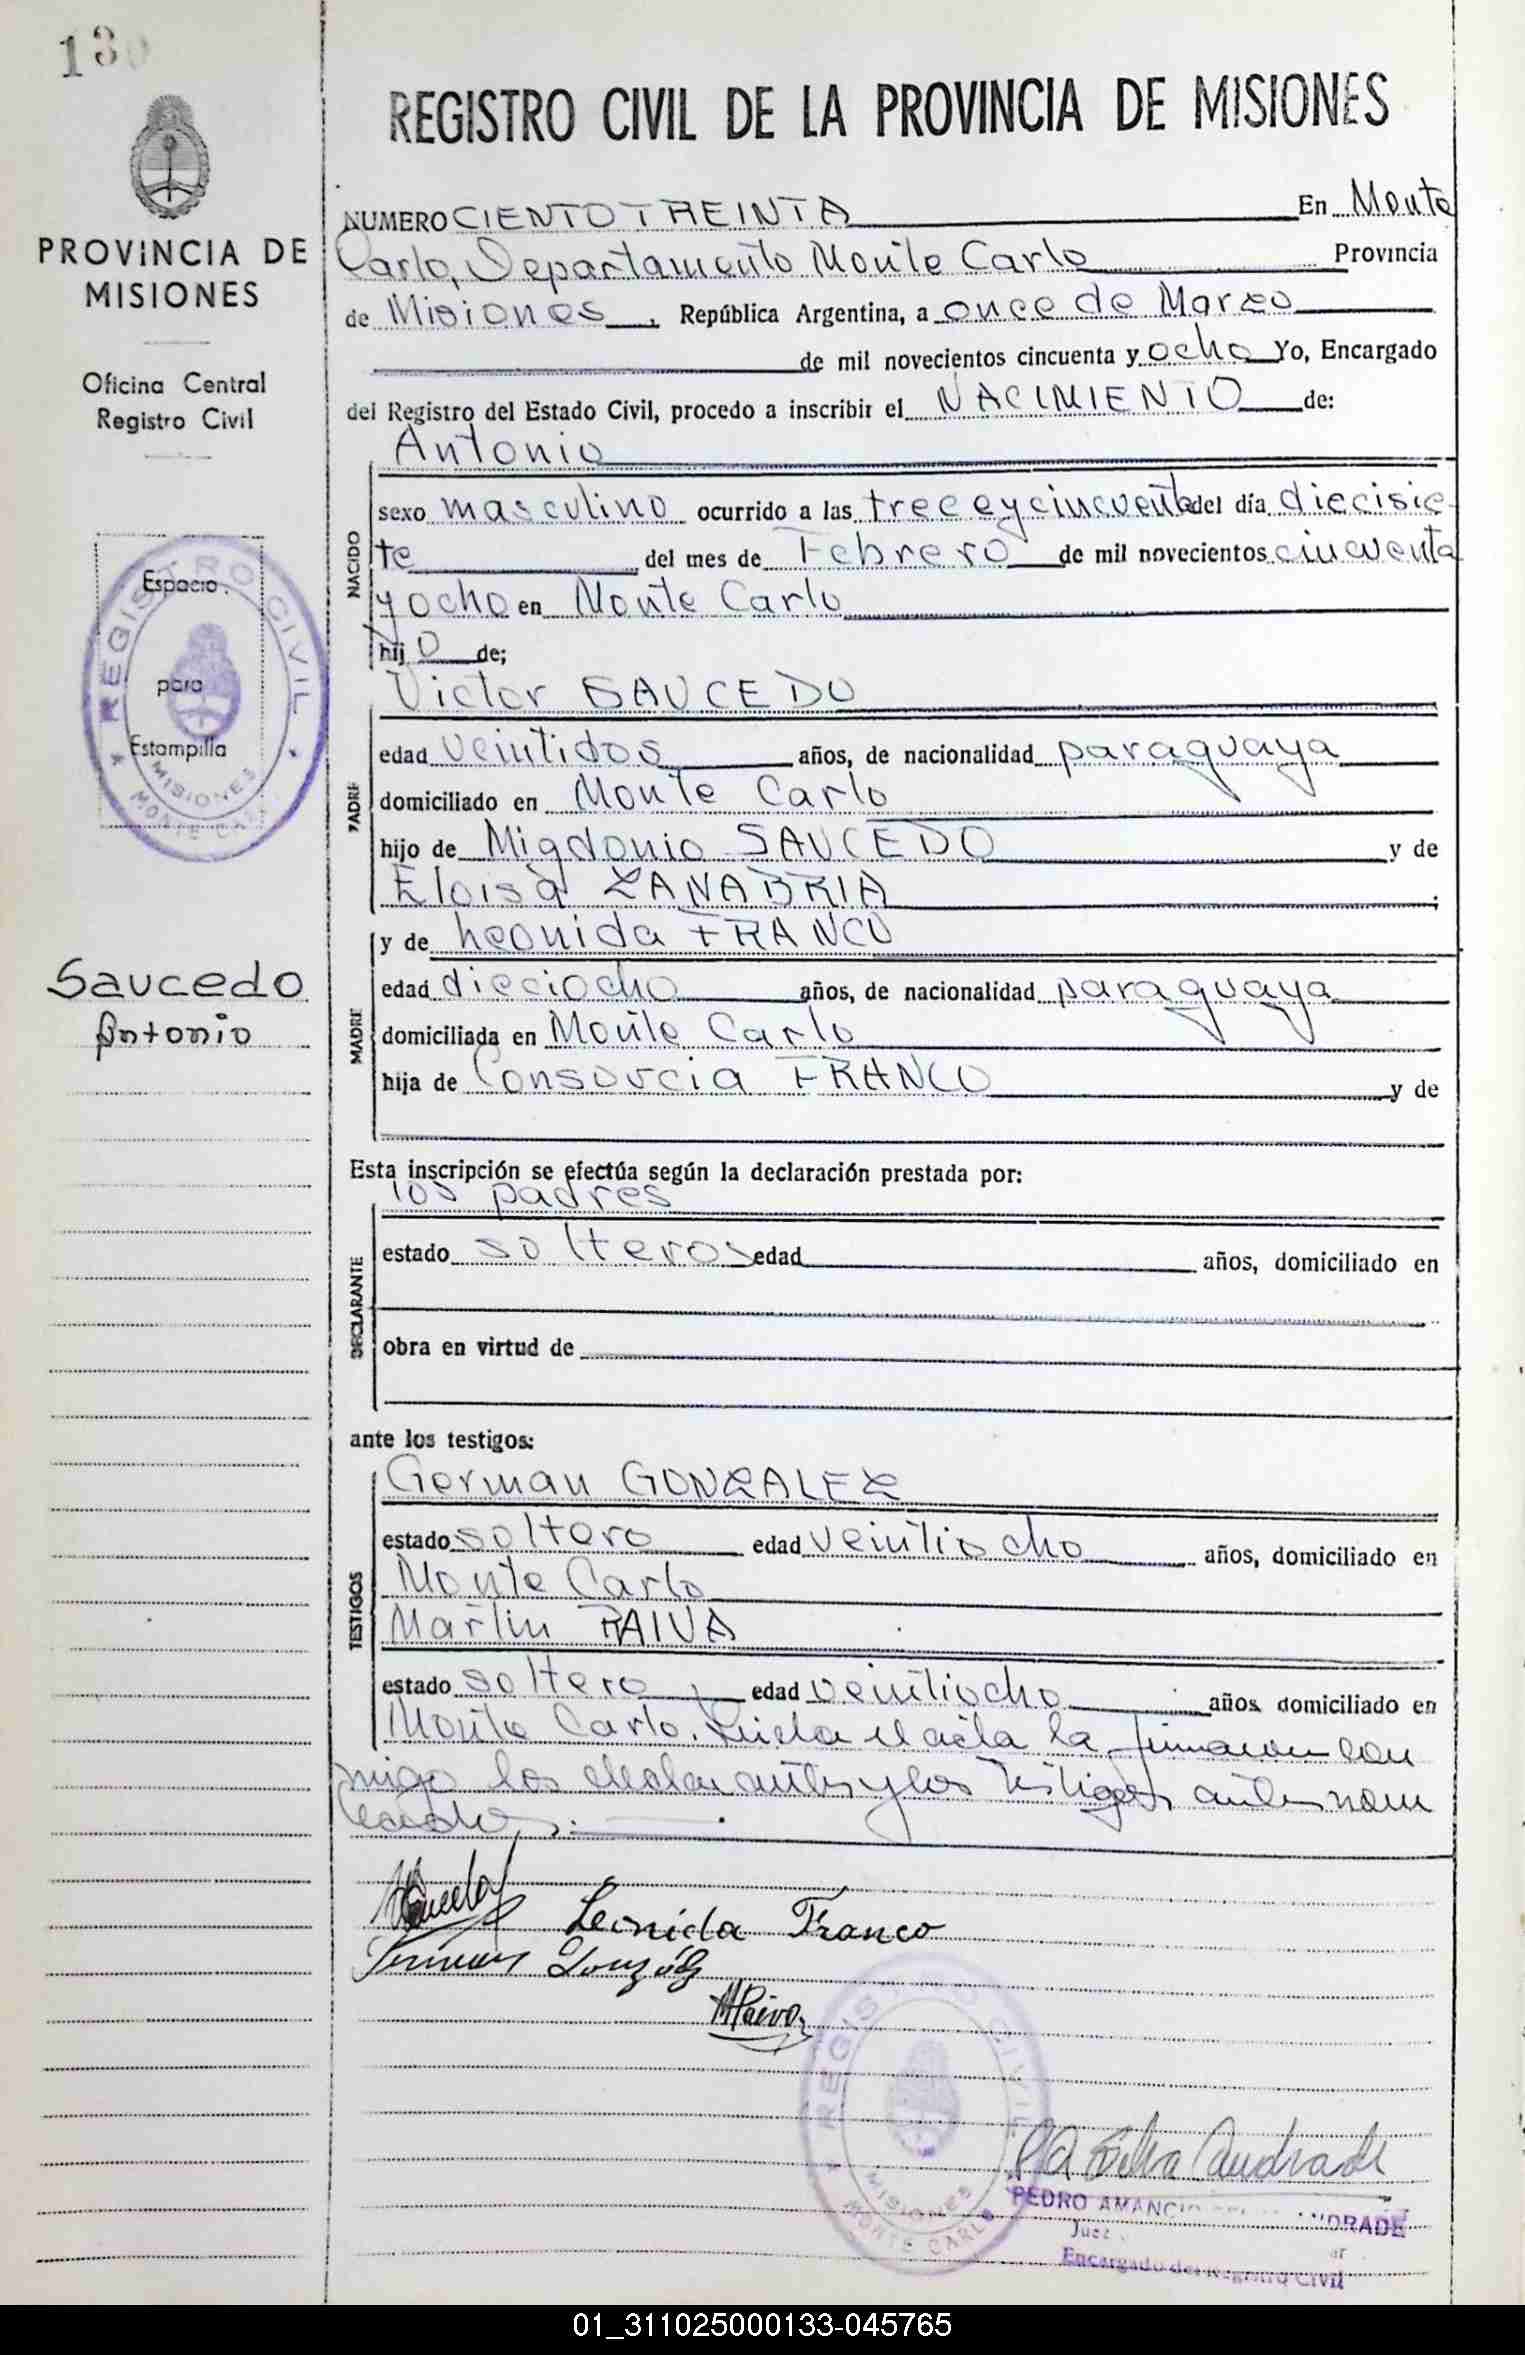 130
REGISTRO CIVIL DE LA PROVINCIA DE MISIONES
PROVINCIA DE
MISIONES
Oficina Central
Registro Civil
Espacio
para
Estampilla
REGISTRO CIVIL
MISIONES
MONTE CARLO
Saucedo
Antonio
NUMERO CIENTO TREINTA En Monte
Carlo, Departamento Monte Carlo Provincia
de Misiones, República Argentina, a once de Marzo
de mil novecientos cincuenta y ocho Yo, Encargado
del Registro del Estado Civil, procedo a inscribir el NACIMIENTO de:
NACIDO
Antonio
sexo masculino ocurrido a las trece y cincuenta del día diecisie-
te del mes de Febrero de mil novecientos cincuenta
y ocho en Monte Carlo
hij o de;
PADRE
Victor SAUCEDO
edad veintidos años, de nacionalidad paraguaya
domiciliado en Monte Carlo
hijo de Migdonio SAUCEDO y de
Eloisa ZANABRIA;
MADRE
y de Leonida FRANCO
edad dieciocho años, de nacionalidad paraguaya
domiciliada en Monte Carlo
hija de Consorcia FRANCO y de
Esta inscripción se efectúa según la declaración prestada por:
DECLARANTE
los padres
estado solteros edad años, domiciliado en
obra en virtud de
ante los testigos:
TESTIGOS
German GONZALEZ
estado soltero edad veintiocho años, domiciliado en
Monte Carlo
Martin PAIVA
estado soltero edad veintiocho años domiciliado en
Monte Carlo. Leida el acta la firmaron con
migo los declarantes y los testigos antes nom
brados.
Saucedo
Leonida Franco
German González
MPaiva
REGISTRO CIVIL
MISIONES
MONTE CARLO
Andrade
PEDRO AMANCIO ANDRADE
Juez
Encargado del Registro Civil
01_311025000133-045765